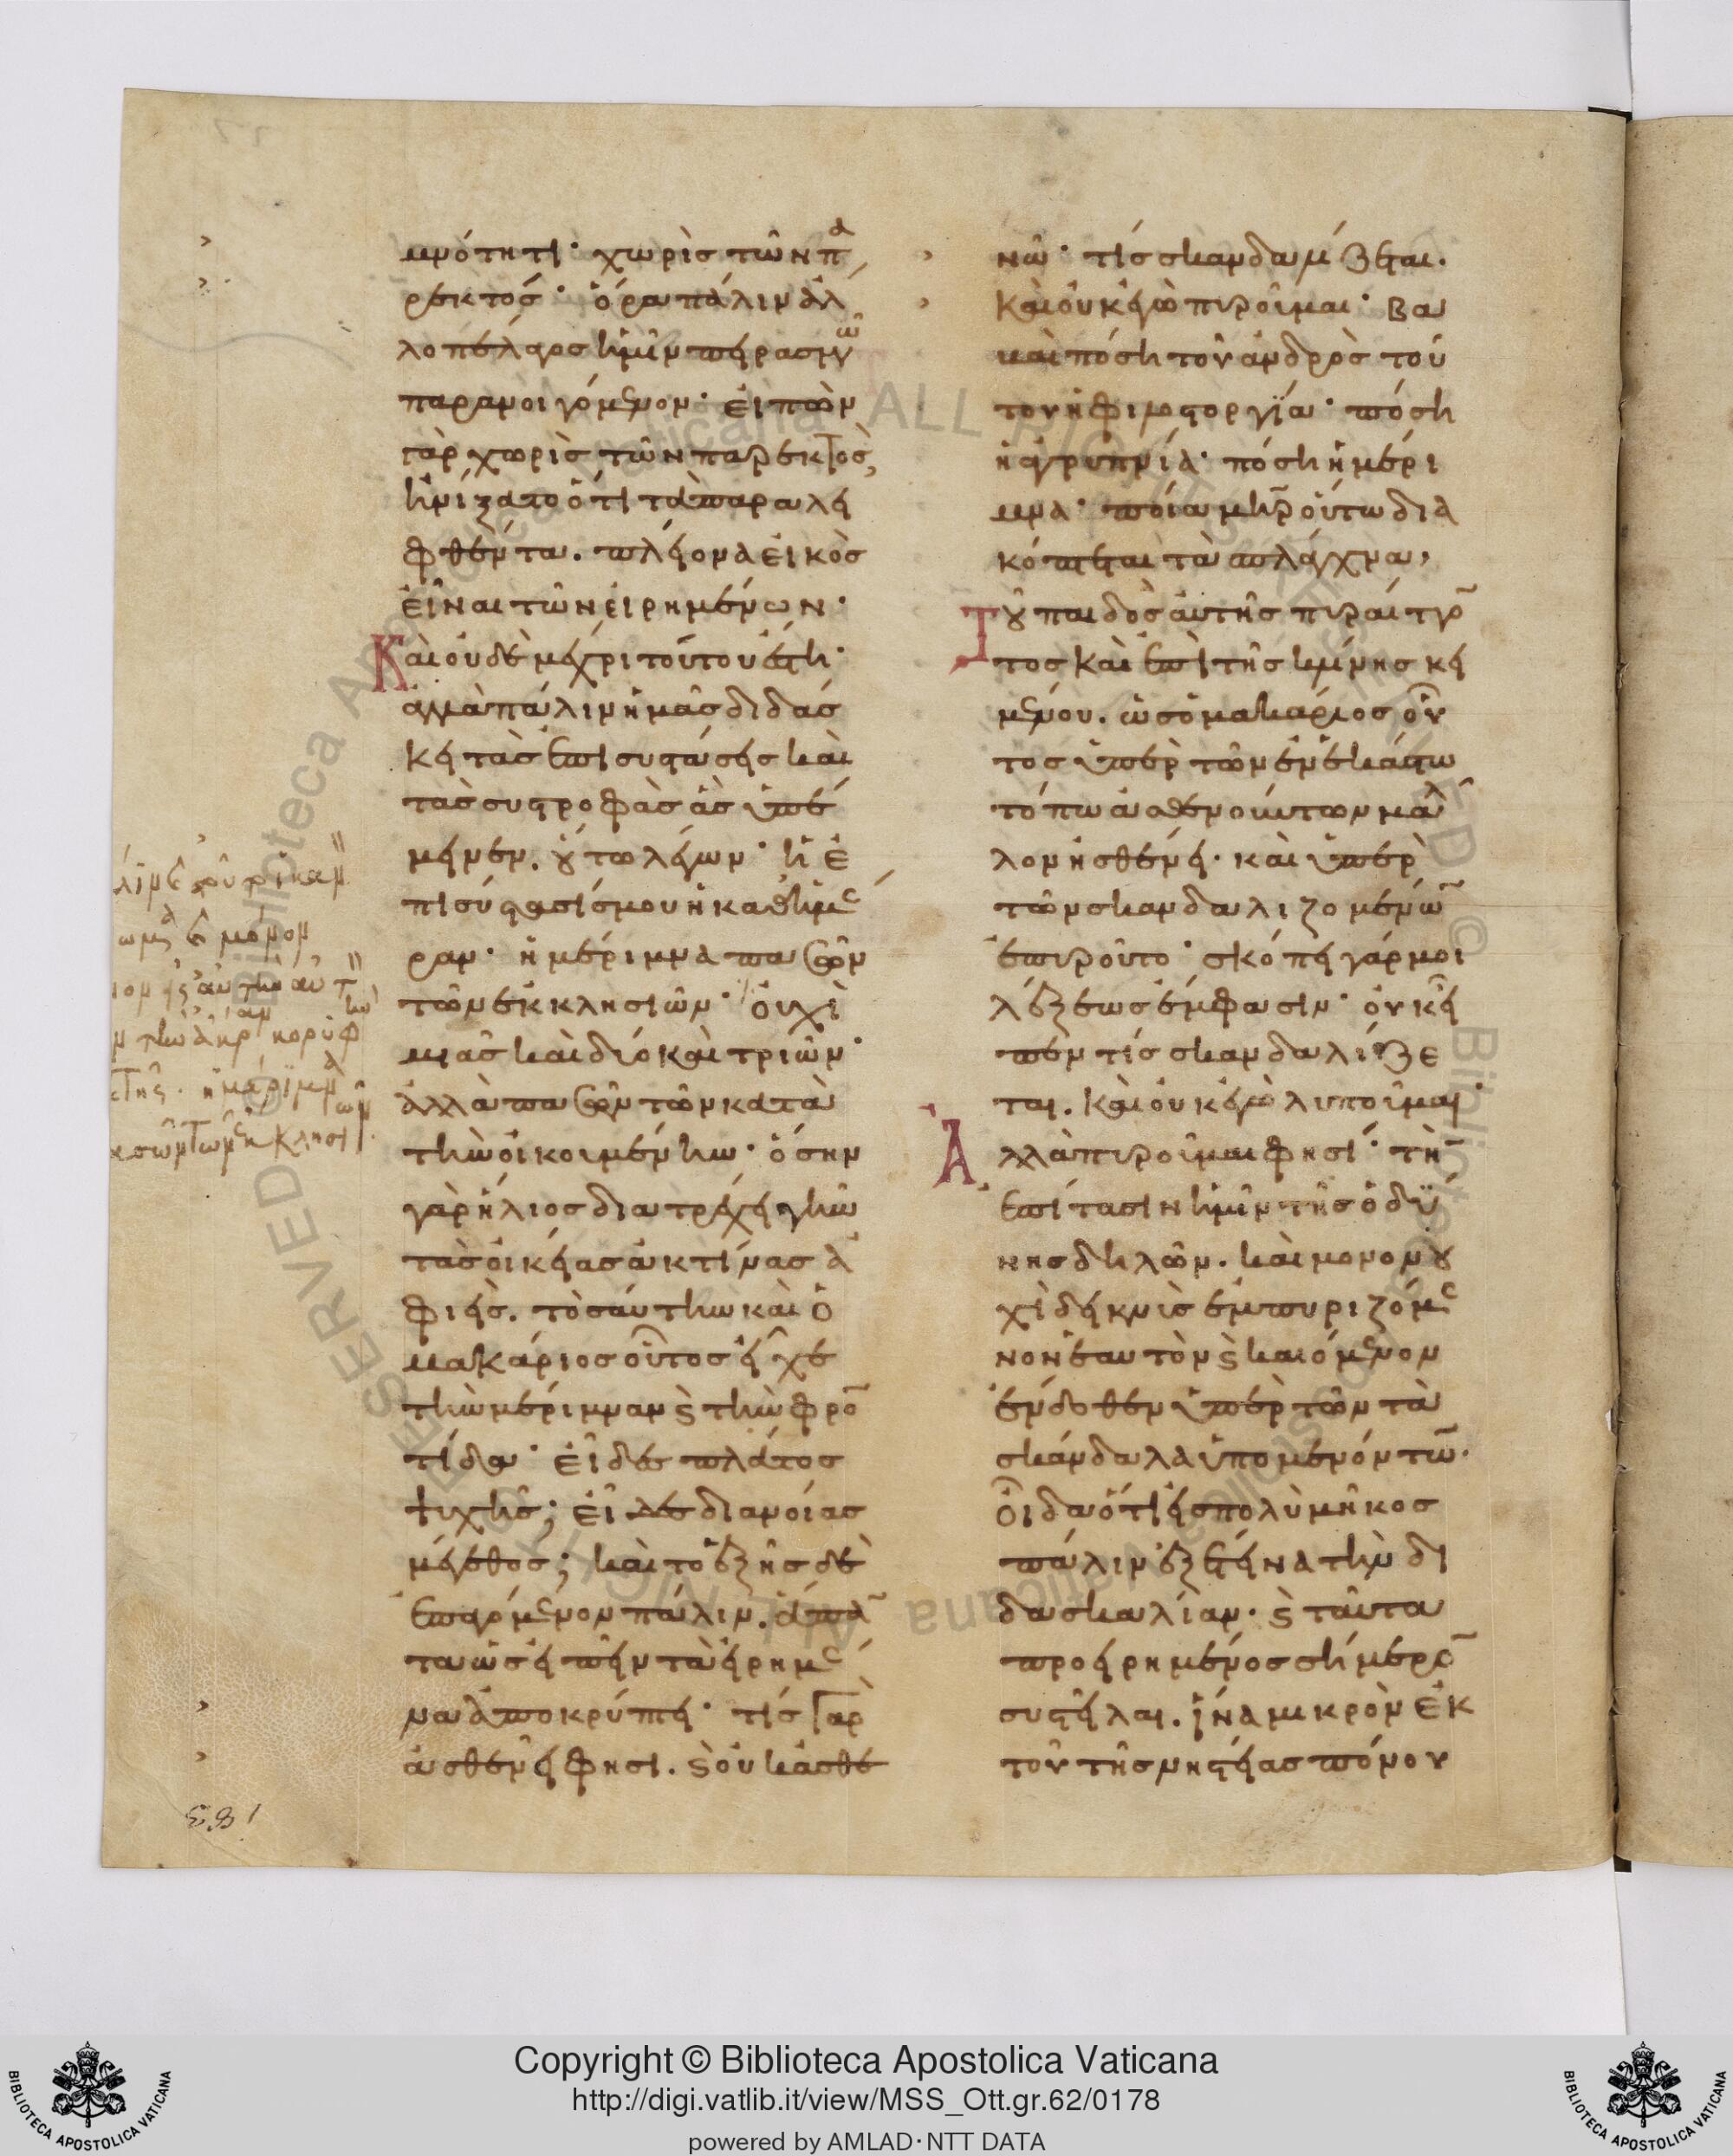 μνότητι· χωρὶς τῶν πα
ρεκτός· ὅρα πάλιν ἀλ
λο πέλαγος ἡμῖν πέρασιν
παρανοιγόμενον· εἰπὼν
γὰρ χωρὶς τῶν παρεκτὸς,
ἠνίξατο ὅτι τὰ παραλει
φθέντα. πλείονα εἰκὸς
εἶναι τῶν εἰρημένων·
Καὶ οὐδὲ μέχρι τούτου ἔστη·
ἀλλὰ πάλιν ἡμᾶς διδάσ
κει τὰς ἐπισυστάσεις καὶ
τὰς συστροφὰς ἃς ὑπέ
μεινεν. οὕτω λέγων· ἡ ἐ
πισύστασίς μου ἡ καθ' ἡμέ
ραν· ἡ μέριμνα πασῶν
τῶν ἐκκλησιῶν· οὐχὶ
μιᾶς καὶ δύο καὶ τριῶν·
ἀλλὰ πασῶν τῶν κατὰ
τὴν οἰκουμένην· ὅσην
γὰρ ἥλιος διατρέχει γῆν
τὰς οἰκείας ἀκτίνας ἀ
φιεὶς. τοσαύτην καὶ ὁ
μακάριος οὗτος εἶχε
τὴν μέριμναν καὶ τὴν φρο
τίδα· εἶδες πλάτος
ψυχῆς; εἶδες διανοίας
μέγεθος; καὶ τὸ ἑξῆς δὲ
ἐπαγόμενον πάλιν. ἅπαν
τα ὡς εἰπεῖν τὰ εἰρημέ
να ἀποκρύπτει· τίς γὰρ
ἀσθενεῖ φησι. καὶ οὐκ ἀσθε
νῶ· τίς σκανδαλίζεται.
καὶ οὐκ ἐγὼ πυροῦμαι· Βα
βαὶ πόση τοῦ ἀνδρὸς τού
του ἡ φιλοστοργία· πόση
ἡ ἀγρυπνία· πόση ἡ μέρι
μνα· ποία μηρ οὕτω δια
κόπτεται τὰ σπλάγχνα,
Τοῦ παιδὸς αὐτῆς πυραίττο
τος καὶ ἐπὶ τῆς κλίνης κει
μένου. ὡς ὁ μακάριος οὗ
τος ὑπὲρ τῶν ἐν ἑκάστω
τόπω ἀσθενούντων μᾶλ
λον ἠσθένει. καὶ ὑπὲρ
τῶν σκανδαλιζομένων
ἐπυροῦτο· σκόπει γάρ μοι
λέξεως ἔμφασιν· οὐκ εἶ
πεν τίς σκανδαλίζε
ται. καὶ οὐκ ἐγὼ λυποῦμαι·
Ἀλλὰ πυροῦμαι φησί· τὴν
ἐπίτασιν ἡμῖν τῆς ὀδύ
νης δηλῶν. καὶ μονονου
χὶ δεικνὺς ἐμπυριζόμε
νον ἑαυτὸν καὶ καιόμενον
ἔνδοθεν ὑπὲρ τῶν τὰ
σκάνδαλα ὑπομενόντων.
Οἶδα ὅτι εἰς πολὺ μῆκος
πάλιν ἐξετείνα τὴν δι
δασκαλίαν. καὶ ταῦτα
προειρημένος σήμερον
συστεῖλαι. ἵνα μικρὸν ἐκ
τοῦ τῆς νηστείας πόνου
183
Copyright © Biblioteca Apostolica Vaticana
http://digi.vatlib.it/view/MSS_Ott.gr.62/0178
powered by AMLAD·NTT DATA